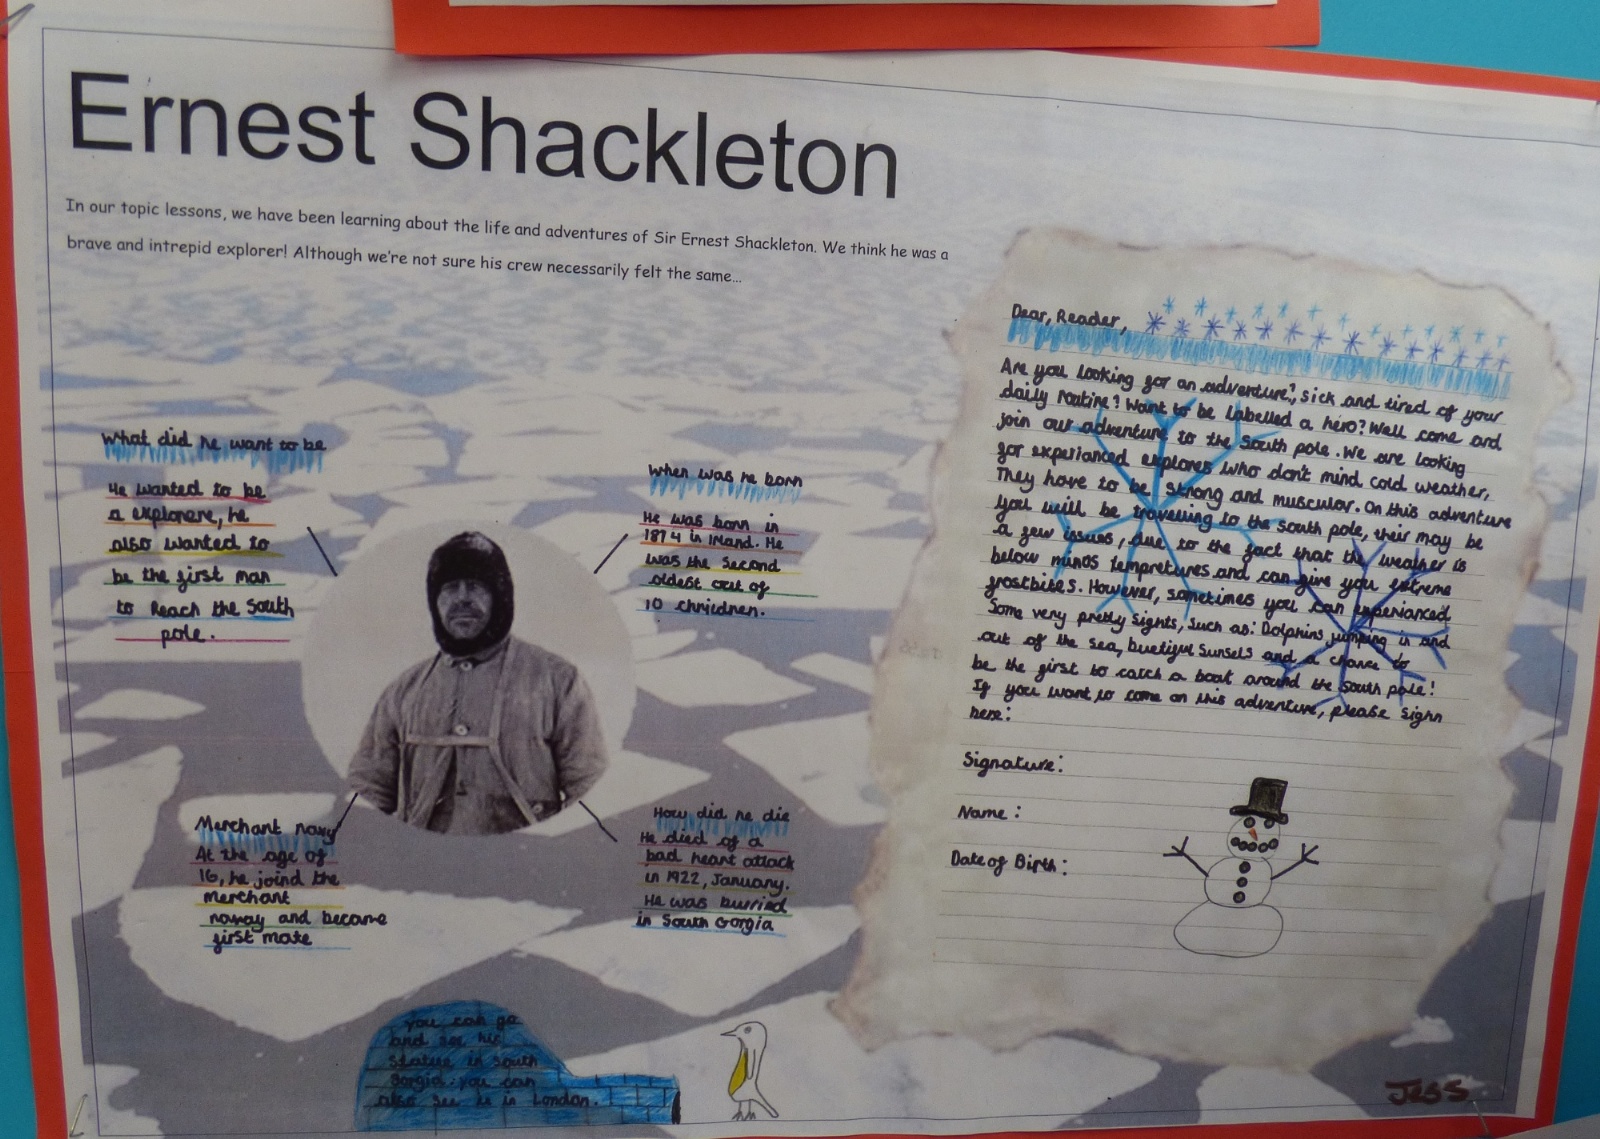 Ernest Shackleton
In our topic lessons, we have been learning about the life and adventures of Sir Ernest Shackleton. We think he was a
brave and intrepid explorer! Although we're not sure his crew necessarily felt the same...
What did he want to be
He wanted to be
a explorere, he
also wanted to
be the first man
to Reach the South
pole.
When was he born
He was born in
1874 in Irland. He
was the second
oldest out of
10 chrildren.
Merchant navy
At the age of
16, he joind the
merchant
navay and became
first mate
How did he die
He died of a
bad heart attack
in 1922, January.
He was burried
in South Gorgia
you can go
and see his
statue in South
Gorgia. you can
also see it in London.
Dear, Reader,
Are you looking for an adventure?, sick and tired of your
daily routine? Want to be labelled a hero? Well come and
join our adventure to the South pole. We are looking
for experianced explores who don't mind cold weather,
They have to be strong and muscular. On this adventure
you will be travelling to the south pole, their may be
a few issues, due to the fact that the weather is
below minos tempretures and can give you extreme
frostbites. However, sometimes you can experianced
Some very pretty sights, such as: Dolphins jumping in and
out of the sea, buetiful sunsets and a chance to
be the first to catch a boat around the South pole!
If you want to come on this adventure, please sighn
here:
Signature:
Name:
Date of Birth:
Jess